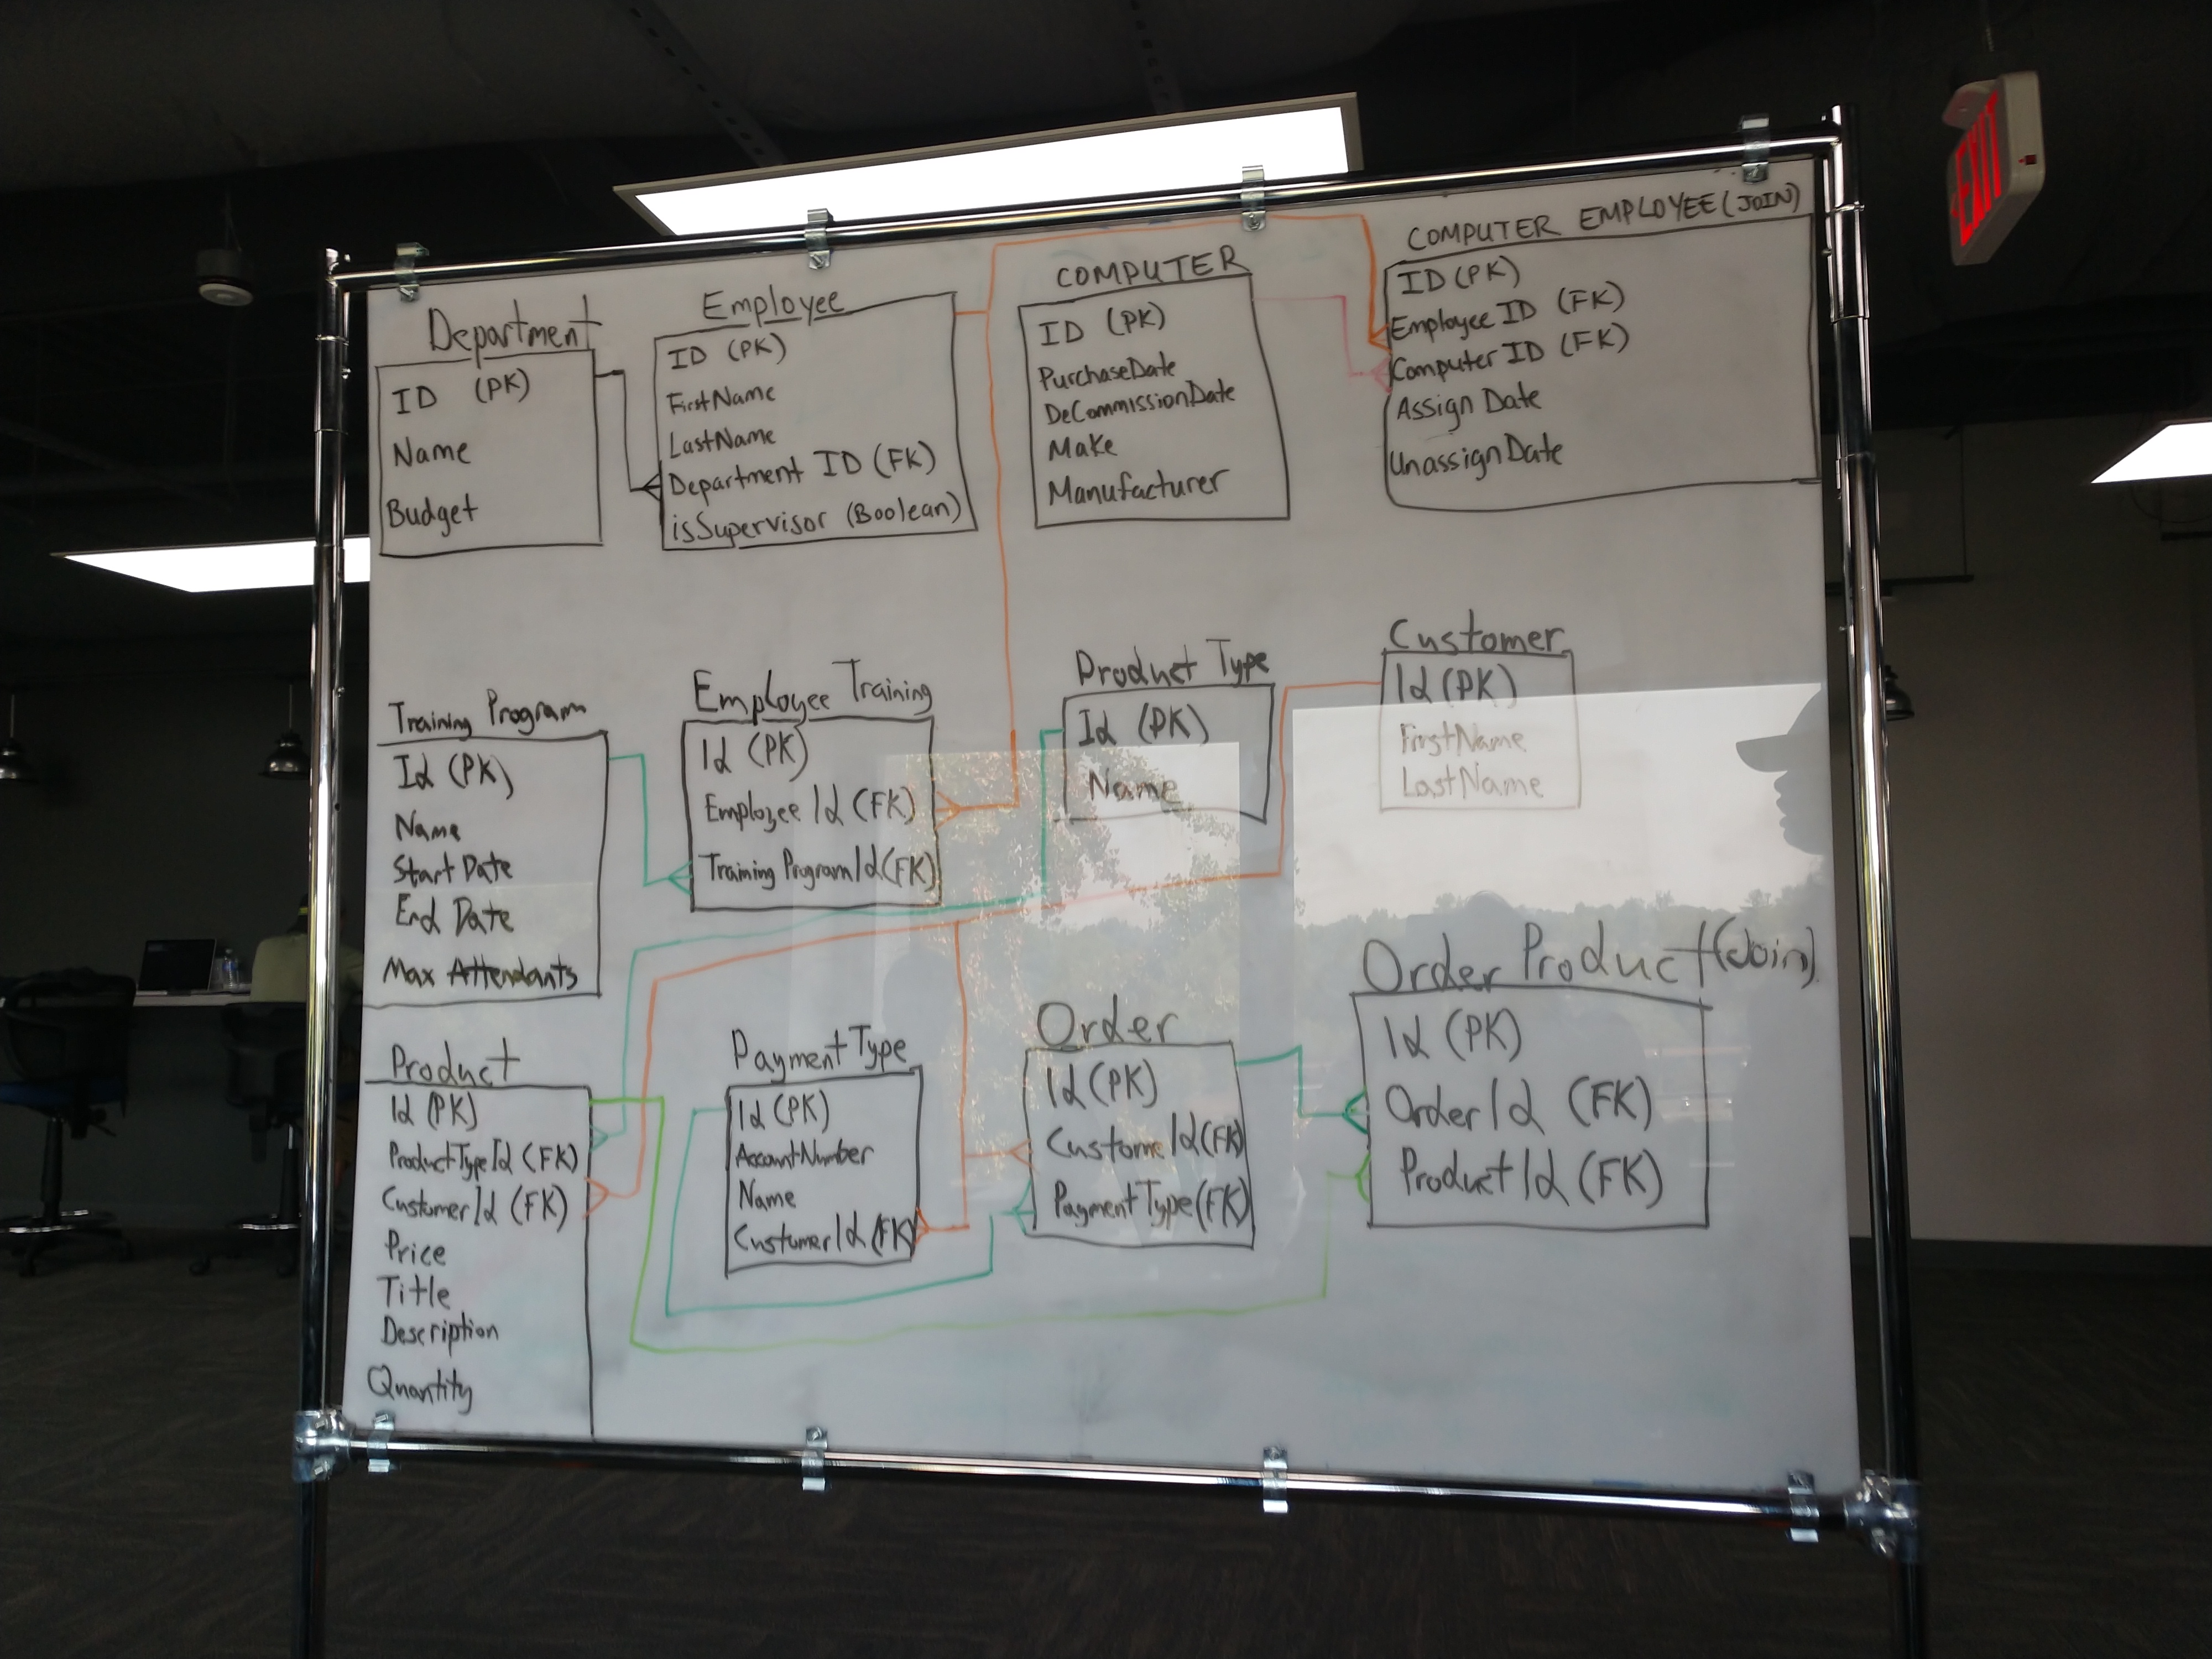 EXIT
Department
ID (PK)
Name
Budget
Employee
ID (PK)
FirstName
LastName
Department ID (FK)
isSupervisor (Boolean)
COMPUTER
ID (PK)
PurchaseDate
DeCommissionDate
Make
Manufacturer
COMPUTER EMPLOYEE (JOIN)
ID (PK)
Employee ID (FK)
Computer ID (FK)
Assign Date
UnassignDate
Training Program
Id (PK)
Name
Start Date
End Date
Max Attendants
Employee Training
Id (PK)
Employee Id (FK)
Training Program Id (FK)
Product Type
Id (PK)
Name
Customer
Id (PK)
FirstName
LastName
Product
Id (PK)
ProductTypeId (FK)
CustomerId (FK)
Price
Title
Description
Quantity
Payment Type
Id (PK)
AccountNumber
Name
CustomerId (FK)
Order
Id (PK)
CustomeId (FK)
Payment Type (FK)
Order Product (Join)
Id (PK)
OrderId (FK)
ProductId (FK)